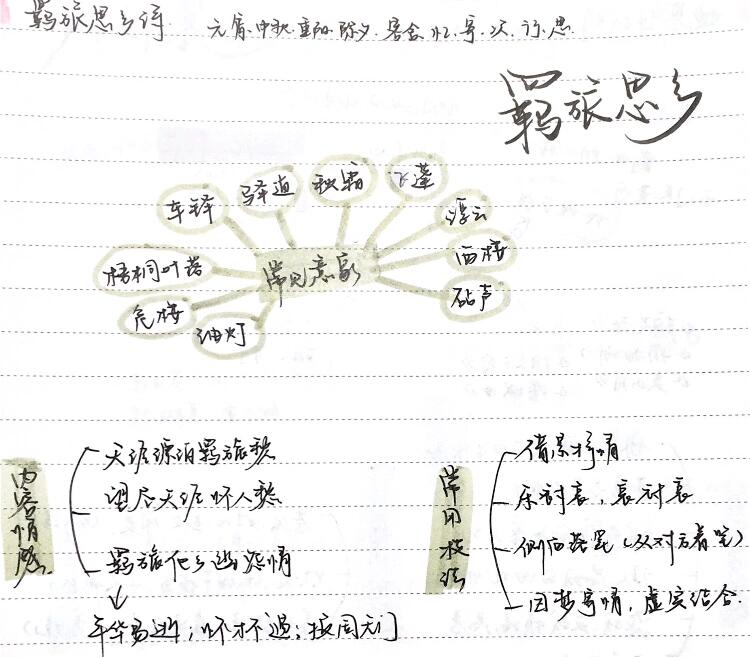 羁旅思乡诗
元宵.中秋.重阳.除夕.客舍.忆.寄.次.行.思
羁旅思乡
车铎
驿道
秋霜
飞蓬
浮云
西楼
砧声
常见意象
梧桐叶落
危楼
油灯
内容情感
天涯漂泊羁旅愁
望尽天涯怀人愁
羁旅他乡幽怨情
年华易逝;怀才不遇;报国无门
常用技法
借景抒情
乐衬哀,哀衬哀
侧面落笔(从对方着笔)
因梦寄情,虚实结合.